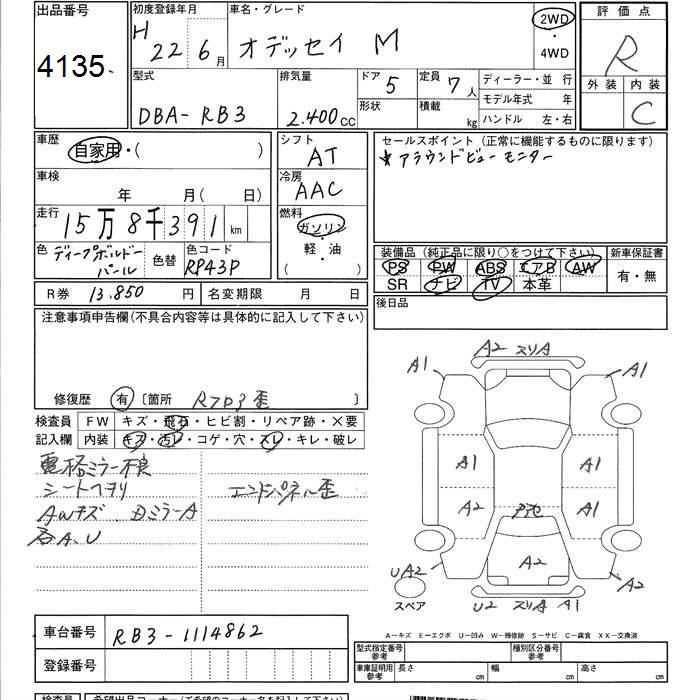 出品番号
4135
初度登録年月
H 22 6月
車名・グレード
オデッセイ M
2WD
・
4WD
評価点
R
外装 内装
C
型式
DBA-RB3
排気量
2.400cc
ドア
5
形状
定員
7人
積載
kg
ディーラー・並 行
モデル年式 年
ハンドル 左・右
車歴
自家用・( )
車検
年 月(日)
走行
15万8千391km
色
ディープボルドーパール
色替
色コード
RP43P
シフト
AT
冷房
AAC
燃料
ガソリン
・
軽・油
( )
セールスポイント(正常に機能するものに限ります)
★アラウンドビューモニター
装備品(純正品に限り○をつけて下さい)
PS PW ABS エアB AW
SR ナビ TV 本革
新車保証書
有・無
後日品
R券 13.850円
名変期限 月 日
注意事項申告欄(不具合内容等は具体的に記入して下さい)
修復歴 有 〔箇所 Rフロア歪 〕
検査員
記入欄
FW キズ・飛石・ヒビ割・リペア跡・X要
内装 キズ・汚レ・コゲ・穴・スレ・キレ・破レ
電格ミラー不良
シートヘタリ
エンドパネル歪
AWキズ
ミラーA
各A.U
A2 スリA
A1 A1
A1 A1
A2 A1
A2
UA2 A2
スペア
U2 スリA A1
A-キズ E-エクボ U-凹み W-補修跡 S-サビ C-腐食 XX-交換済
車台番号
RB3-1114862
登録番号
型式指定番号
参考
種別区分番号
参考
車庫証明用
参考
長さ 幅 高さ
検査員
希望出品コーナー(ご希望のコーナー名を記入下さい)